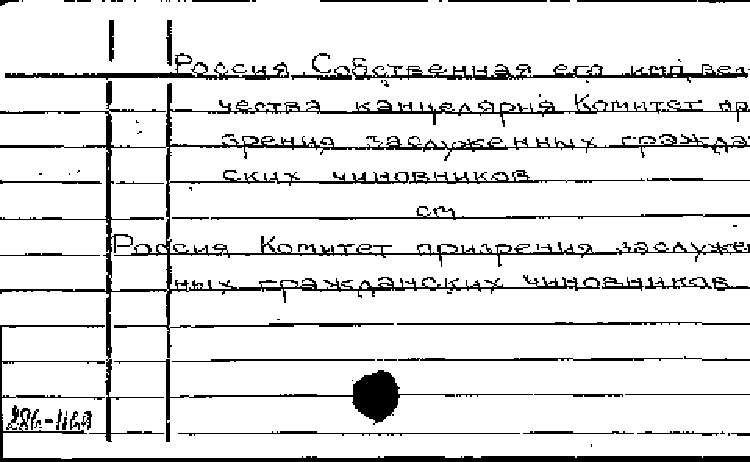 Россия Собственная его имп. вел
чества канцелярия Комитет пр
зрения заслуженных гражда
ских чиновников
см.
Россия Комитет призрения заслуже
ных гражданских чиновников